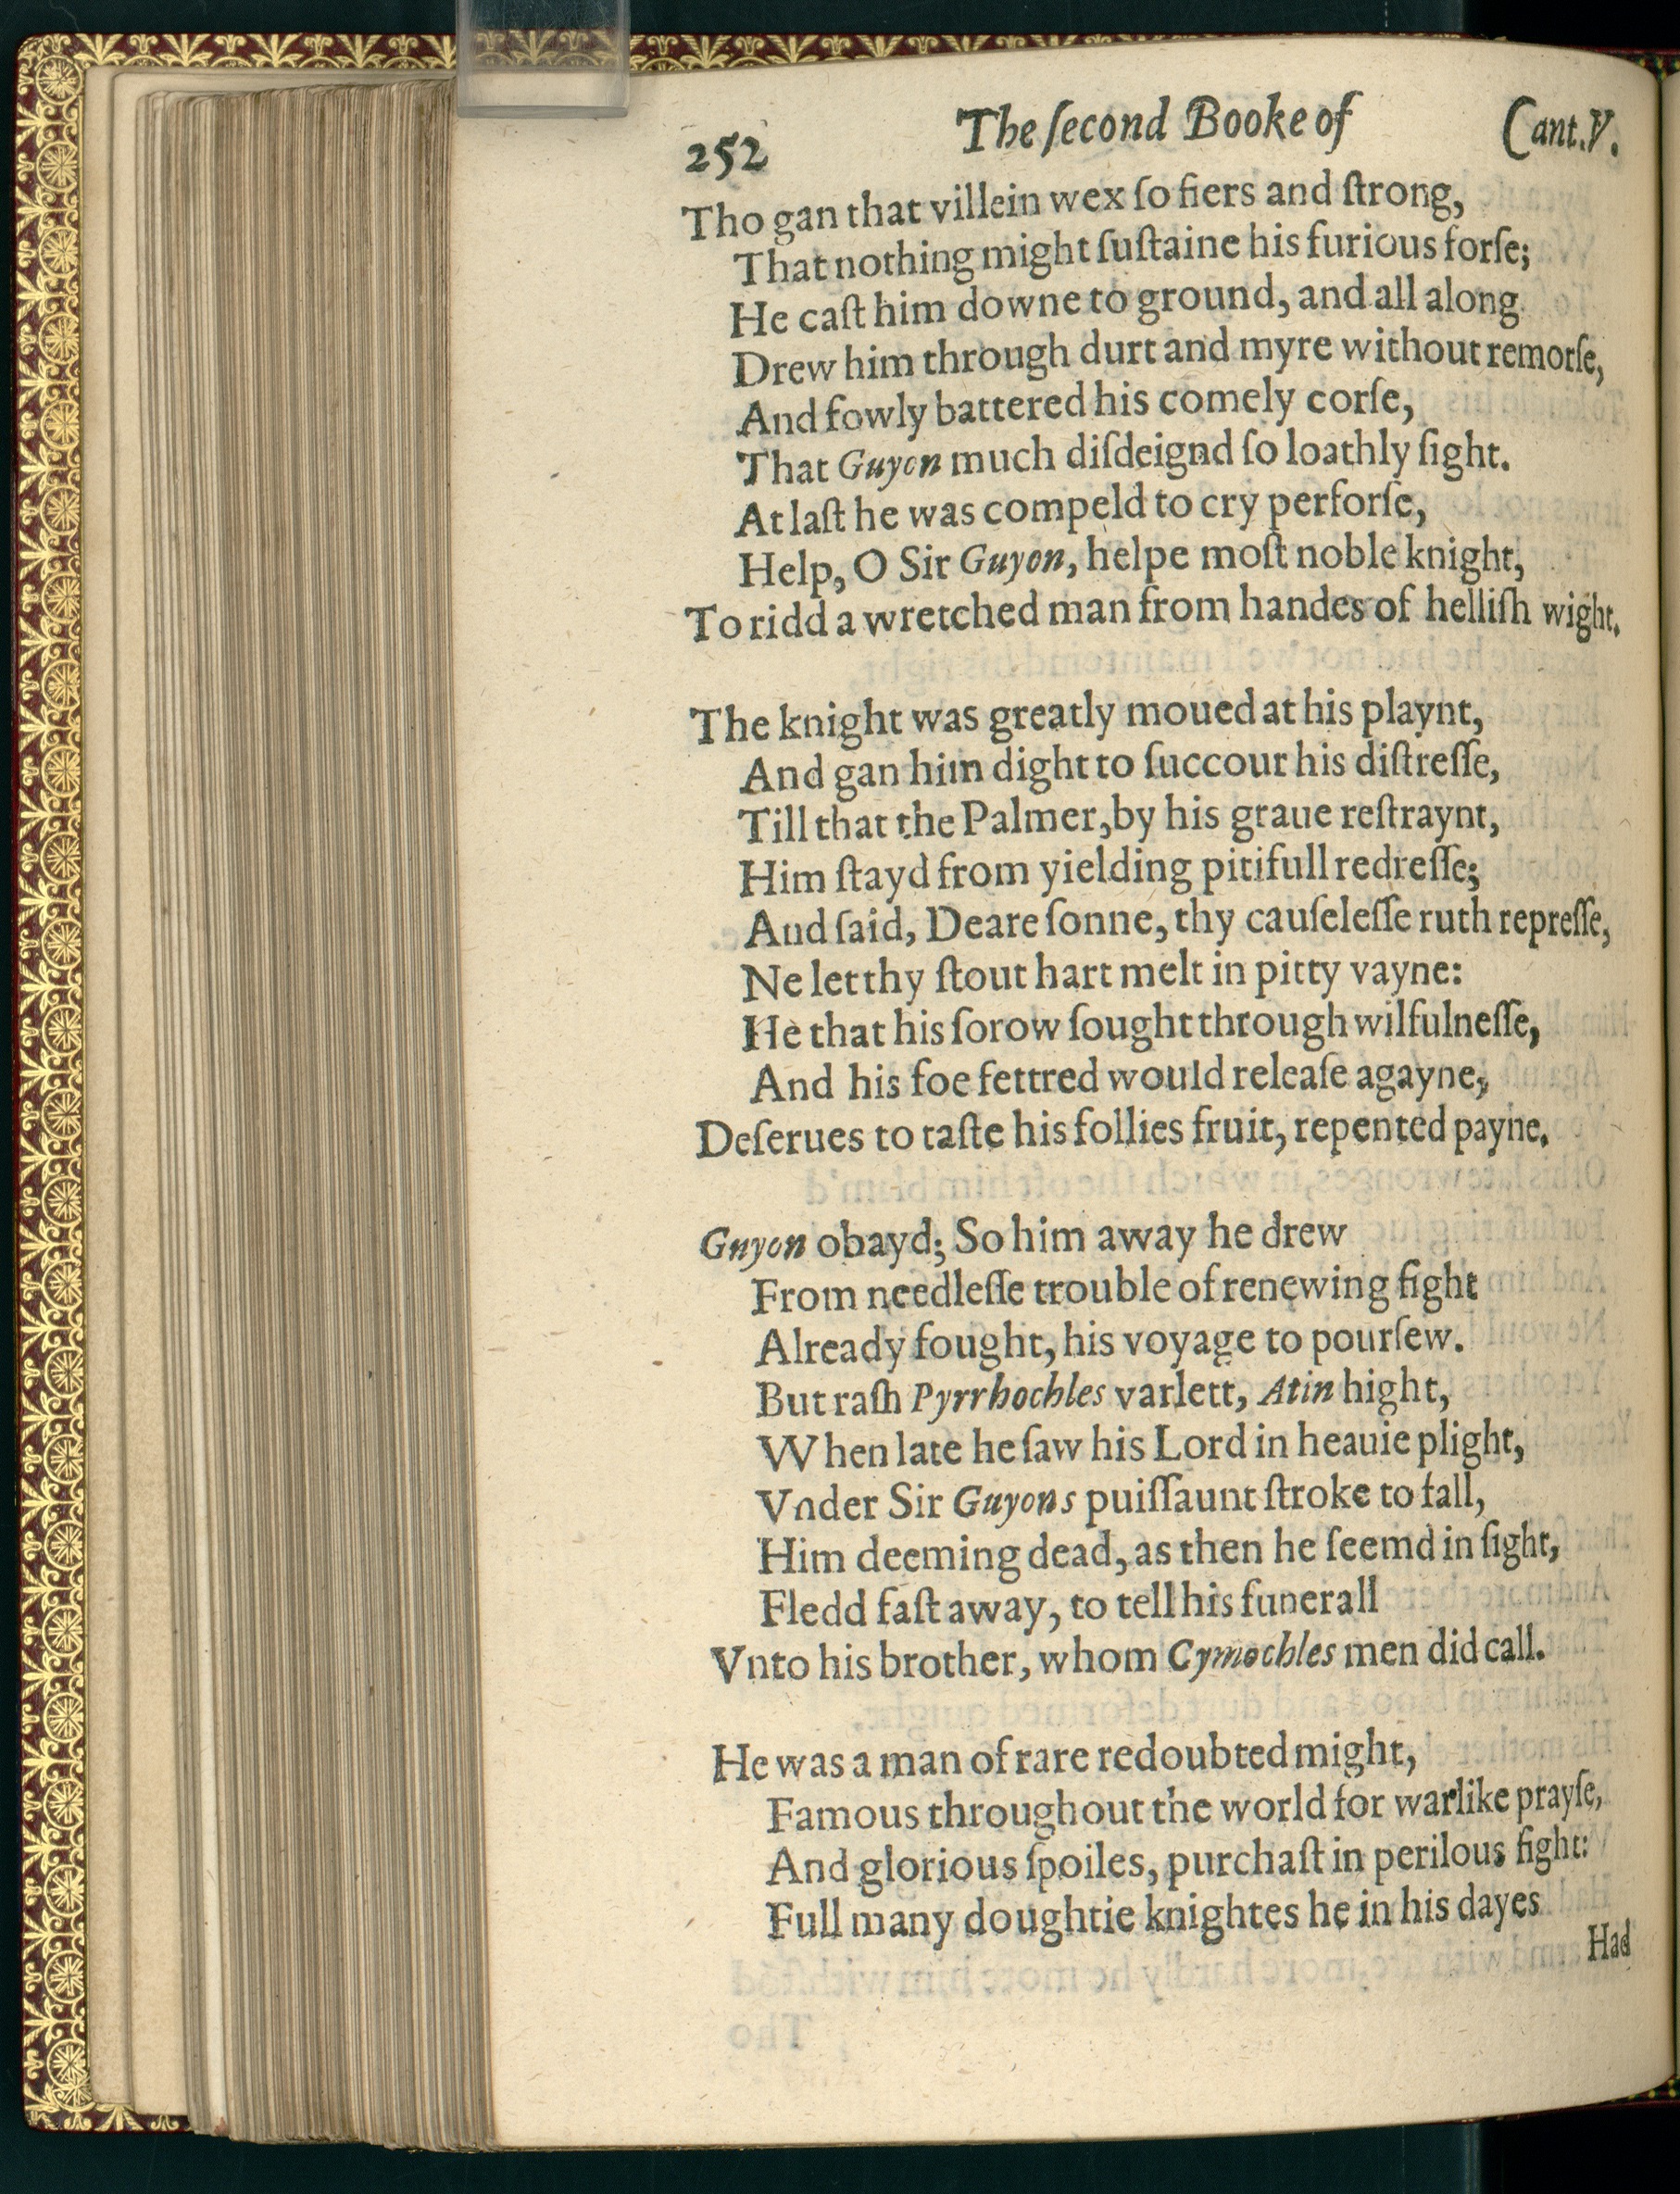 252 The ſecond Booke of Cant.V.
Tho gan that villein wex ſo fiers and ſtrong,
That nothing might ſuſtaine his furious forſe;
He caſt him downe to ground, and all along
Drew him through durt and myre without remorſe,
And fowly battered his comely corſe,
That Guyon much diſdeignd ſo loathly ſight.
At laſt he was compeld to cry perforſe,
Help, O Sir Guyon, helpe moſt noble knight,
To ridd a wretched man from handes of helliſh wight.
The knight was greatly moued at his playnt,
And gan him dight to ſuccour his diſtreſſe,
Till that the Palmer, by his graue reſtraynt,
Him ſtayd from yielding pitifull redreſſe;
And ſaid, Deare ſonne, thy cauſeleſſe ruth repreſſe,
Ne let thy ſtout hart melt in pitty vayne:
He that his ſorow ſought through wilfulneſſe,
And his foe fettred would releaſe agayne,
Deſerues to taſte his follies fruit, repented payne.
Guyon obayd; So him away he drew
From needleſſe trouble of renewing fight
Already fought, his voyage to pourſew.
But raſh Pyrrhochles varlett, Atin hight,
When late he ſaw his Lord in heauie plight,
Vnder Sir Guyons puiſſaunt ſtroke to fall,
Him deeming dead, as then he ſeemd in ſight,
Fledd faſt away, to tell his funerall
Vnto his brother, whom Cymochles men did call.
He was a man of rare redoubted might,
Famous throughout the world for warlike prayſe,
And glorious ſpoiles, purchaſt in perilous fight:
Full many doughtie knightes he in his dayes
Had